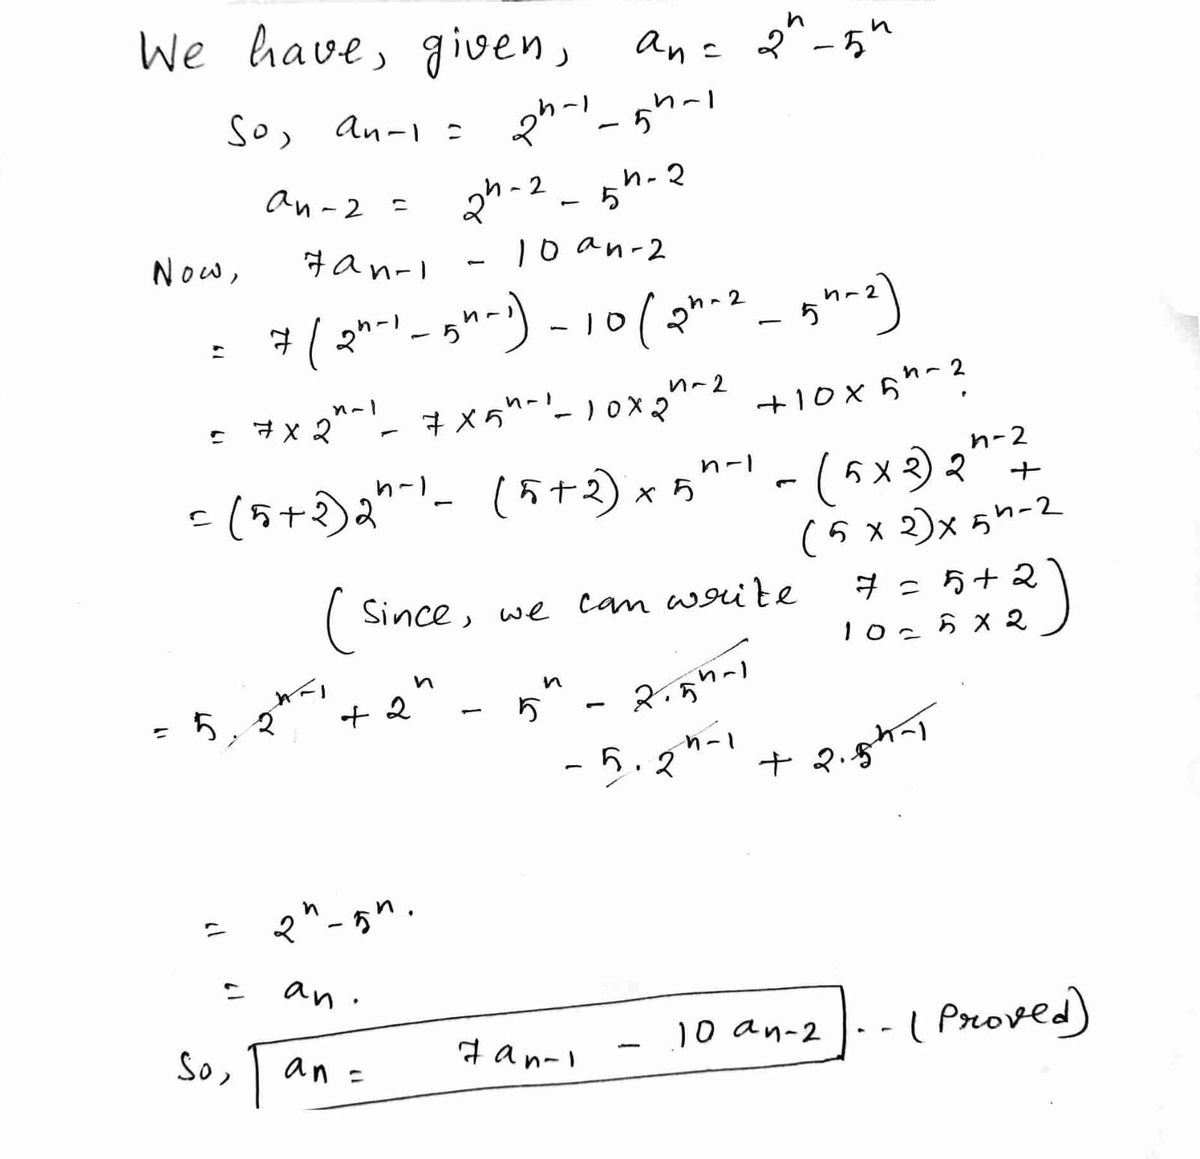 We have, given, aₙ = 2ⁿ - 5ⁿ
So, aₙ₋₁ = 2ⁿ⁻¹ - 5ⁿ⁻¹
aₙ₋₂ = 2ⁿ⁻² - 5ⁿ⁻²
Now, 7aₙ₋₁ - 10 aₙ₋₂
= 7(2ⁿ⁻¹ - 5ⁿ⁻¹) - 10(2ⁿ⁻² - 5ⁿ⁻²)
= 7 × 2ⁿ⁻¹ - 7 × 5ⁿ⁻¹ - 10 × 2ⁿ⁻² + 10 × 5ⁿ⁻².
= (5+2)2ⁿ⁻¹ - (5+2) × 5ⁿ⁻¹ - (5×2) 2ⁿ⁻² +
(5 × 2) × 5ⁿ⁻²
(Since, we can write 7 = 5+2
10 = 5 × 2)
= 5.2ⁿ⁻¹ + 2ⁿ - 5ⁿ - 2.5ⁿ⁻¹
- 5.2ⁿ⁻¹ + 2.5ⁿ⁻¹
= 2ⁿ - 5ⁿ.
= aₙ.
So, aₙ = 7aₙ₋₁ - 10 aₙ₋₂ .-- (Proved)